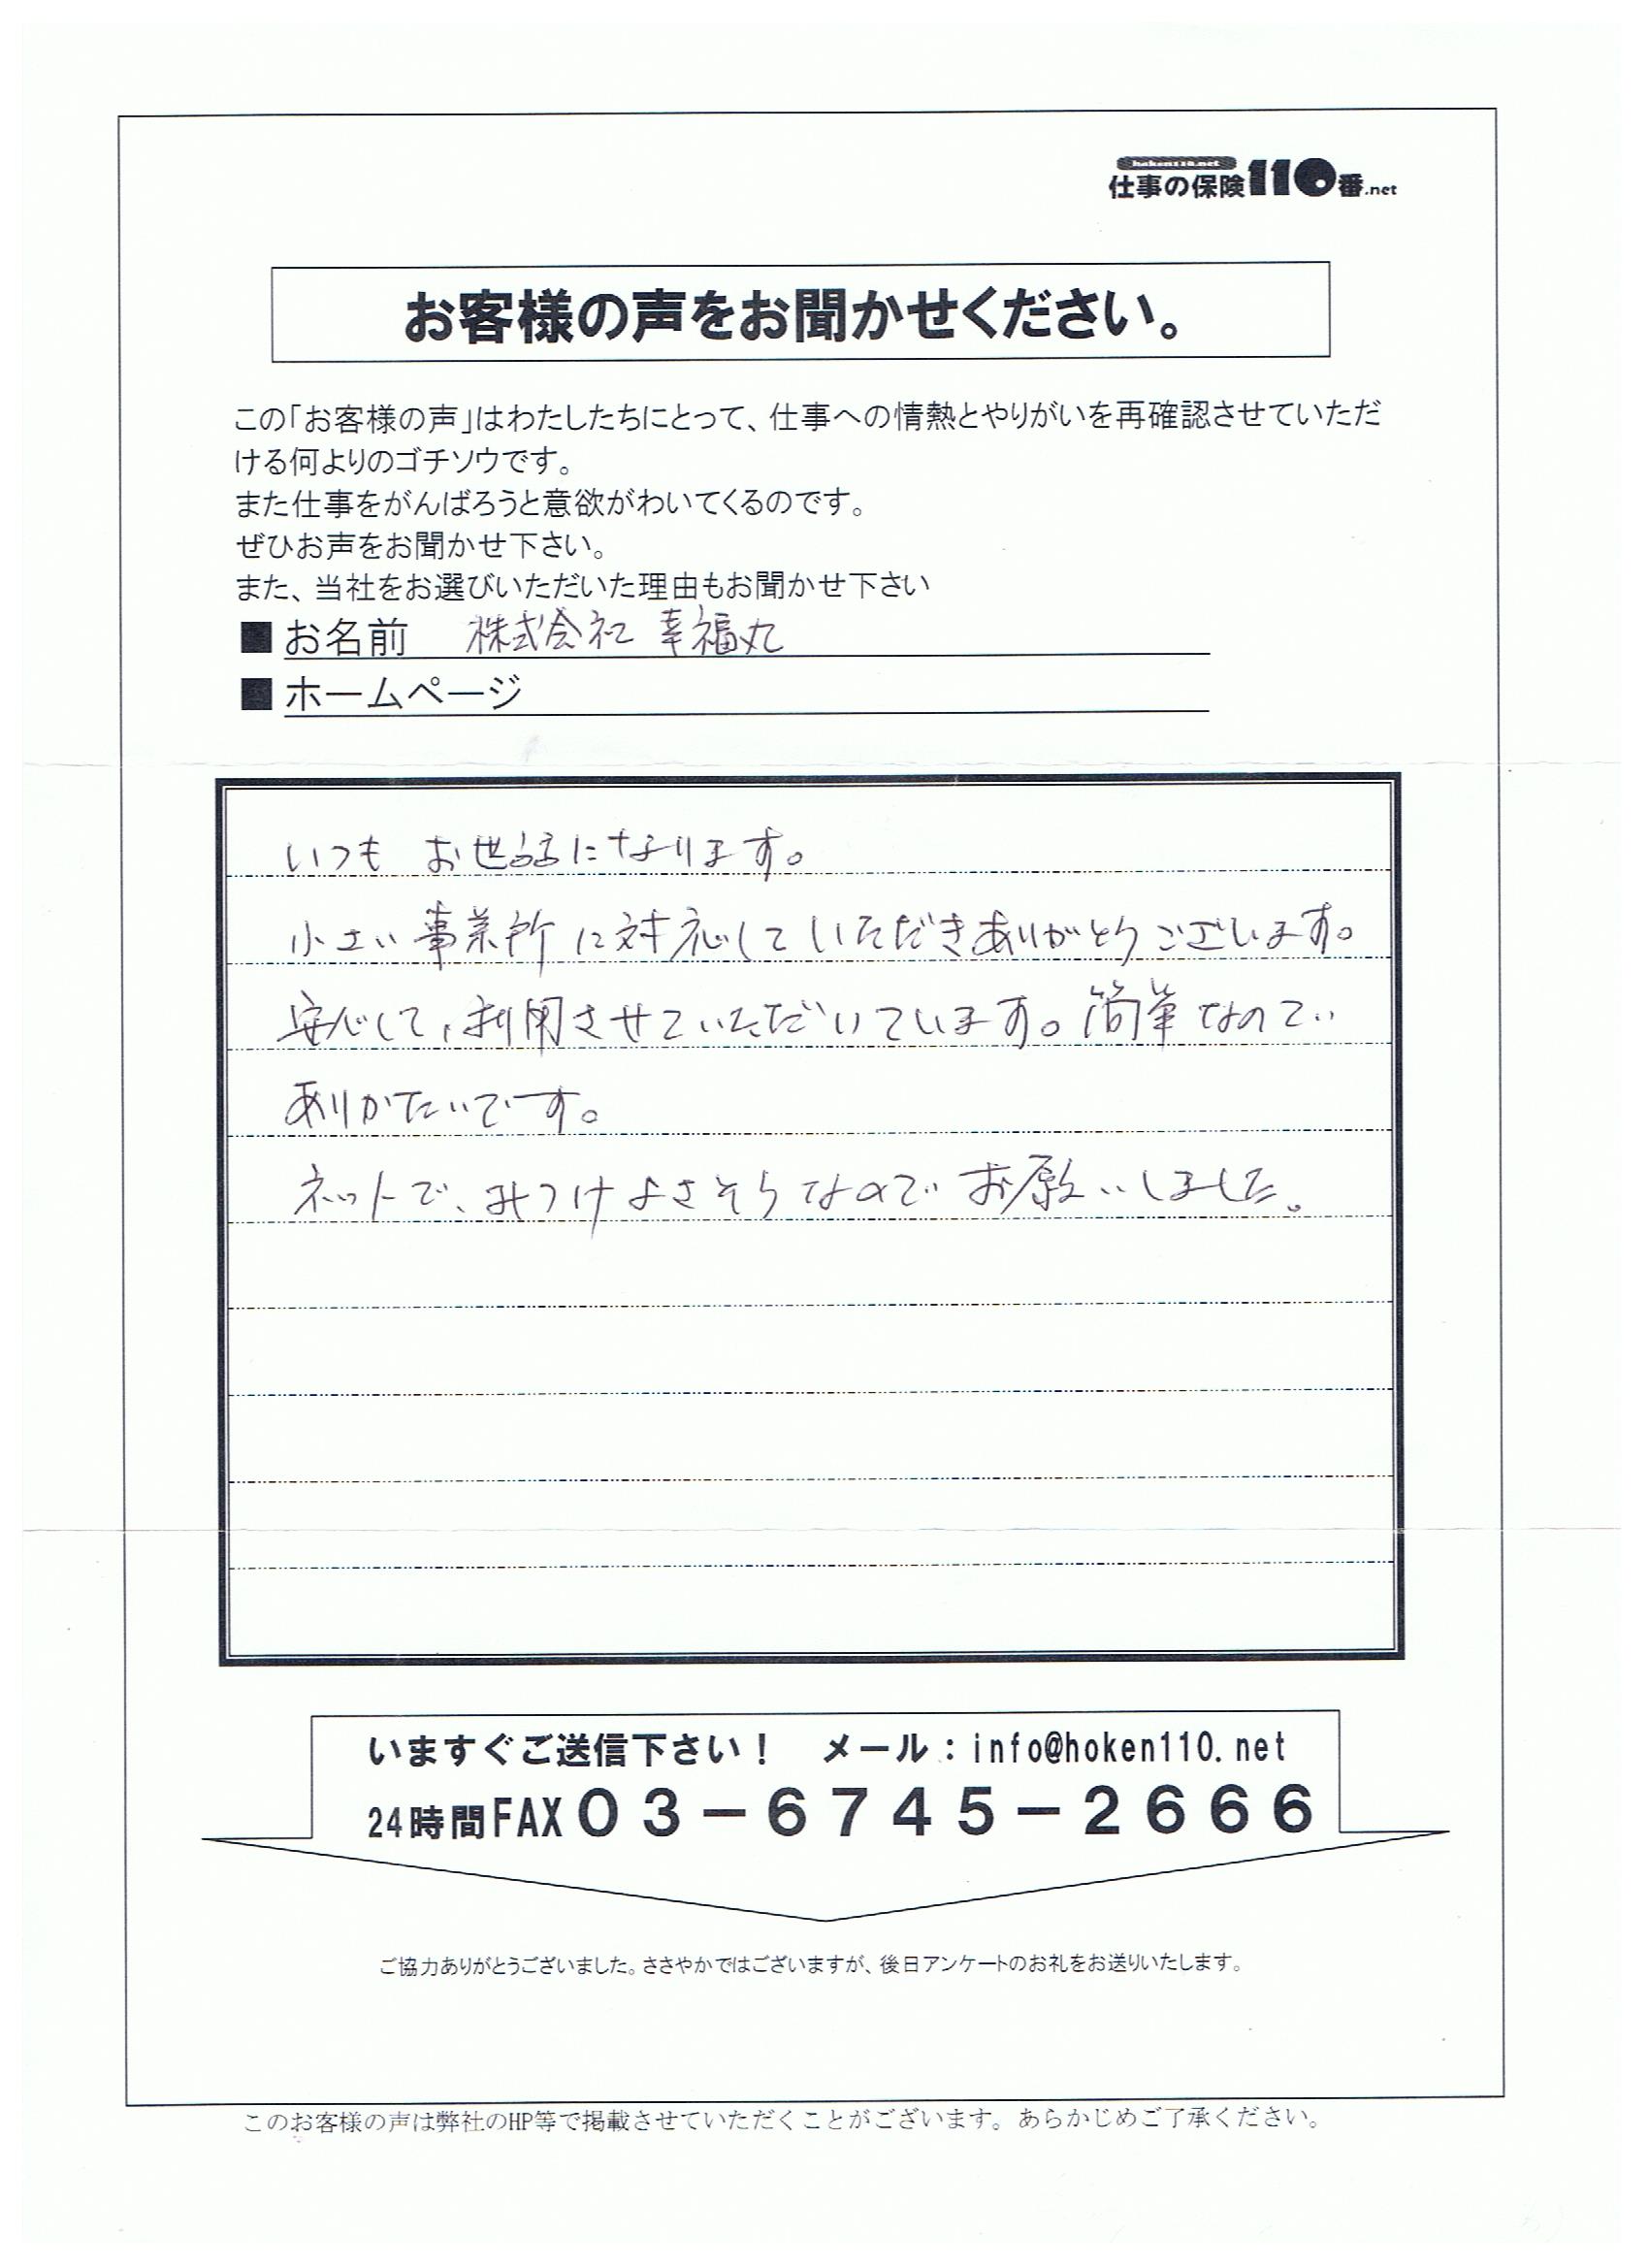 hoken110.net
仕事の保険110番.net
お客様の声をお聞かせください。
この「お客様の声」はわたしたちにとって、仕事への情熱とやりがいを再確認させていただ
ける何よりのゴチソウです。
また仕事をがんばろうと意欲がわいてくるのです。
ぜひお声をお聞かせ下さい。
また、当社をお選びいただいた理由もお聞かせ下さい
■お名前 株式会社 幸福丸
■ホームページ
いつも お世話になります。
小さい事業所に対応していただきありがとうございます。
安心して、利用させていただいています。簡単なので
ありがたいです。
ネットで、みつけよさそうなので お願いしました。
いますぐご送信下さい! メール:info@hoken110.net
24時間FAX03-6745-2666
ご協力ありがとうございました。ささやかではございますが、後日アンケートのお礼をお送りいたします。
このお客様の声は弊社のHP等で掲載させていただくことがございます。あらかじめご了承ください。